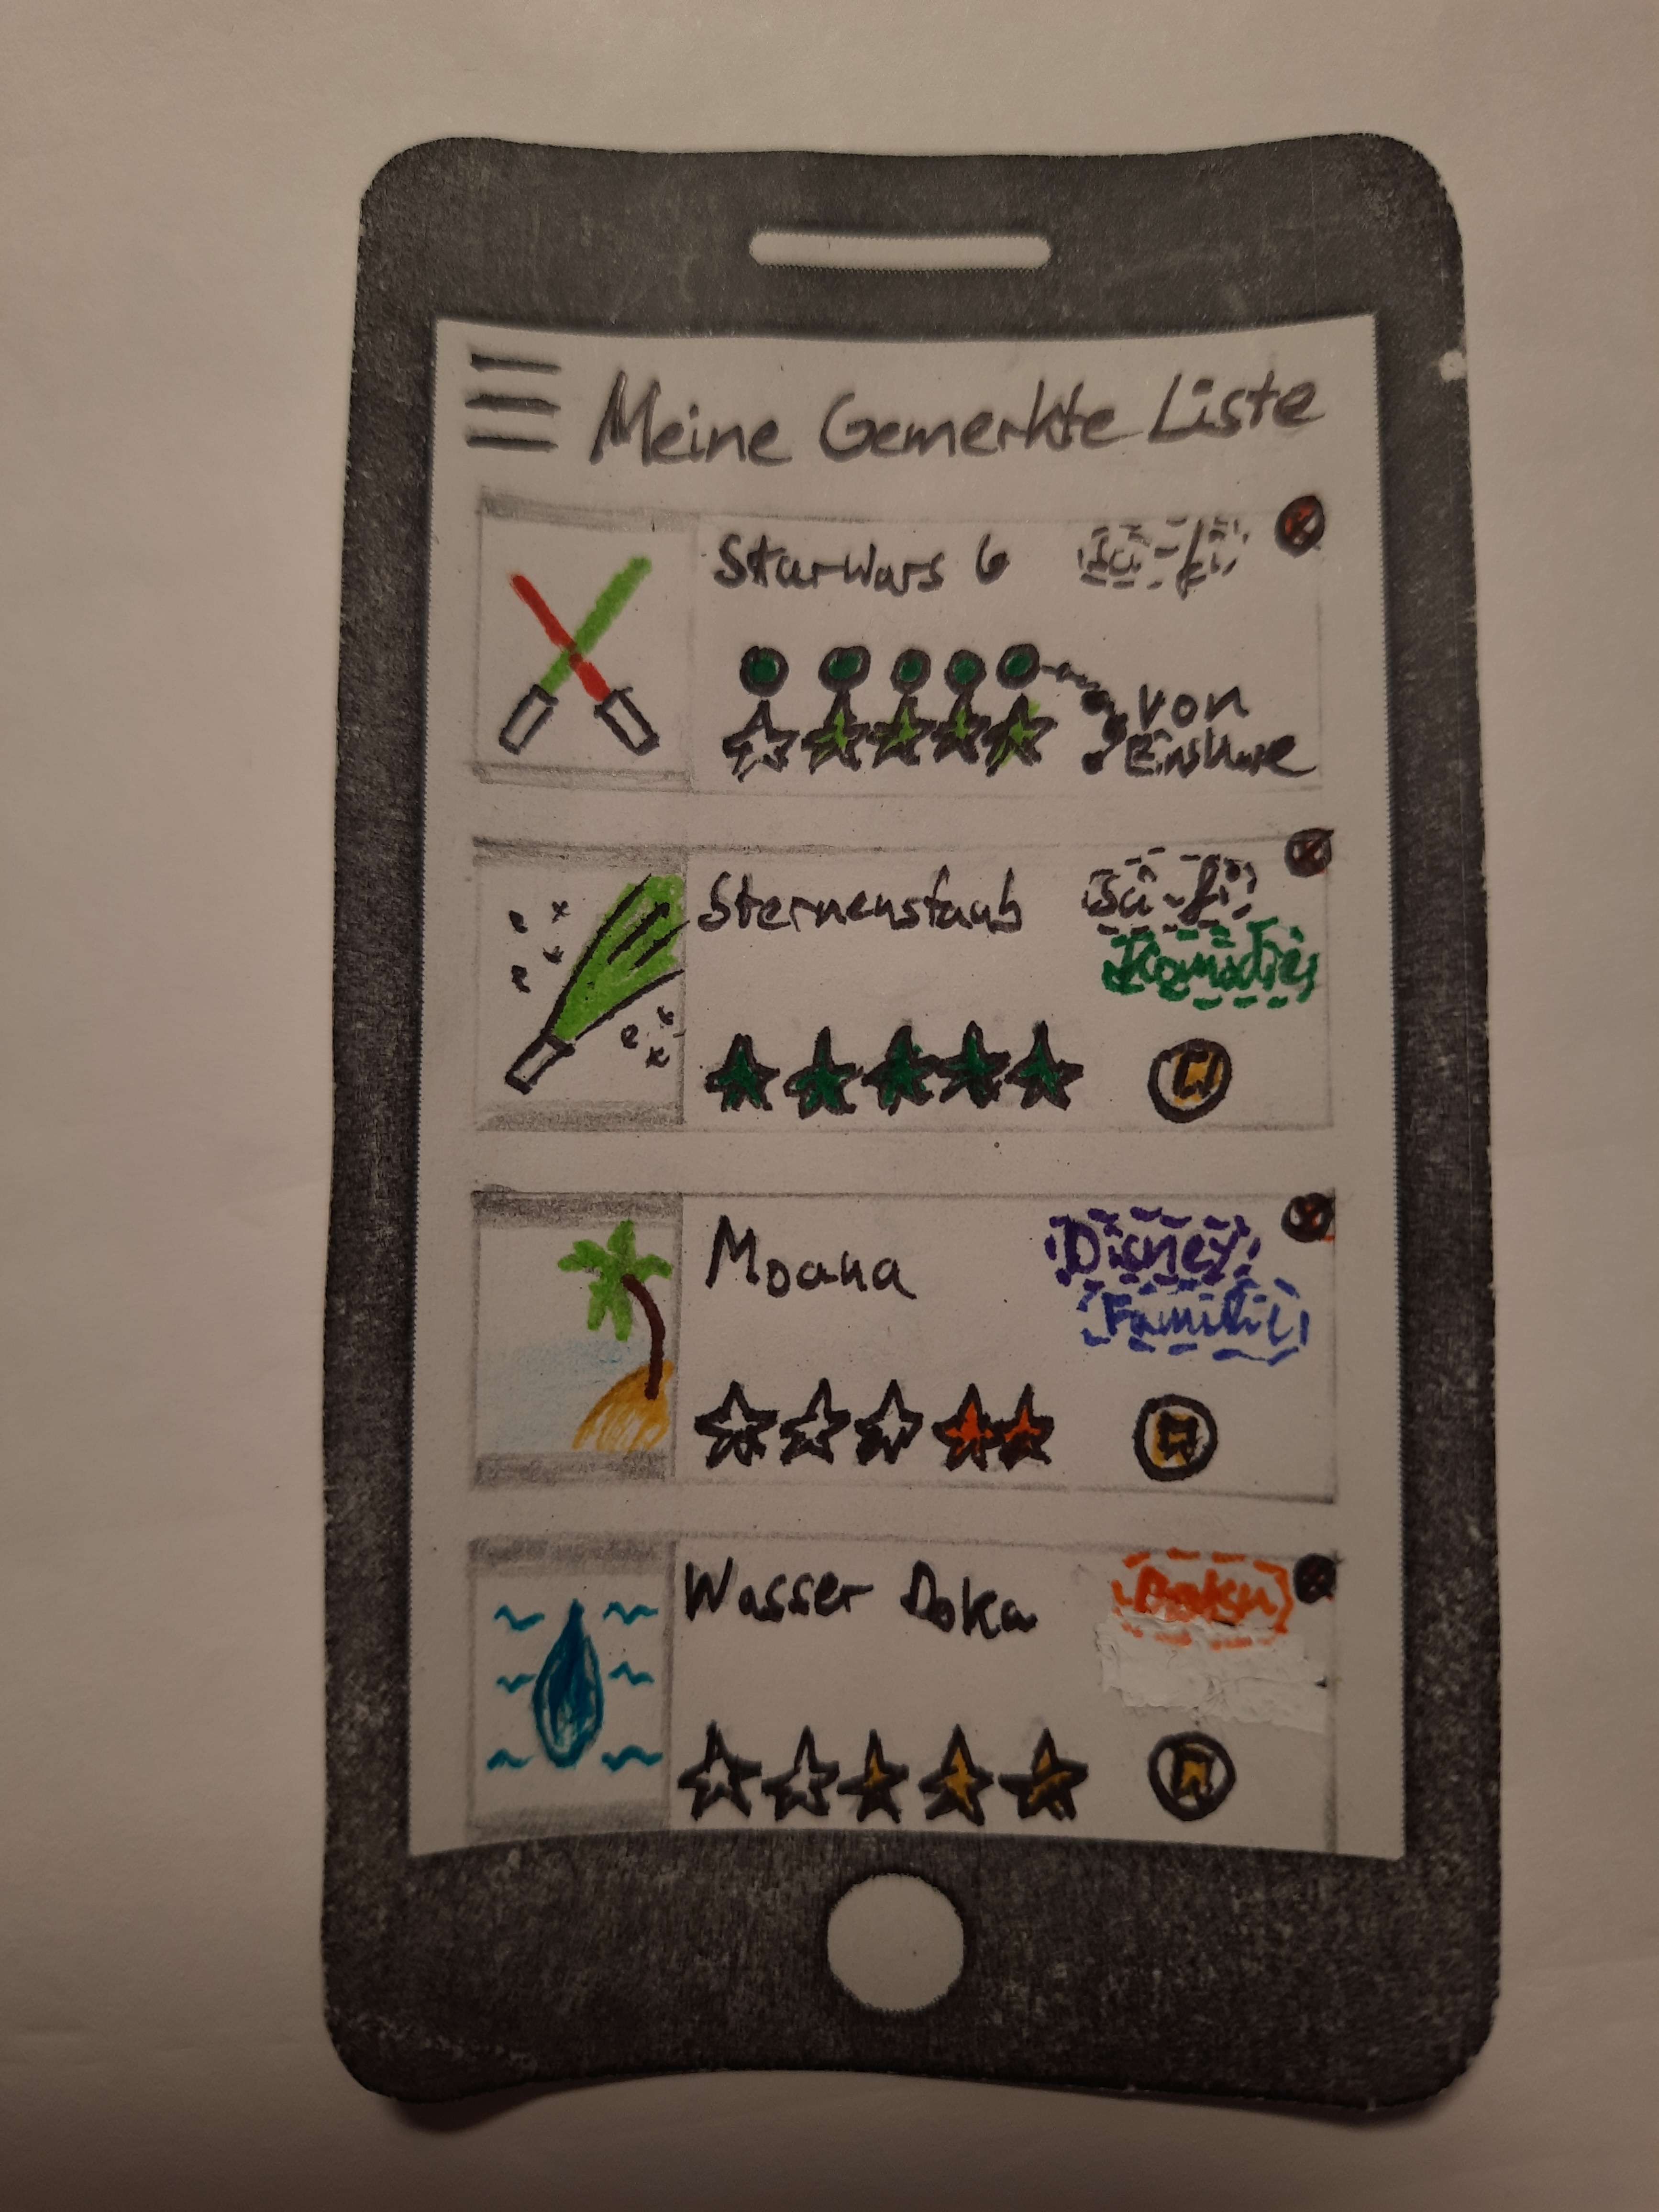 Meine Gemerkte Liste
StarWars 6
Sci-fi
von
Sternenstaub
Sci-fi
Komödie
Moana
Disney
Familie
Wasser Doku